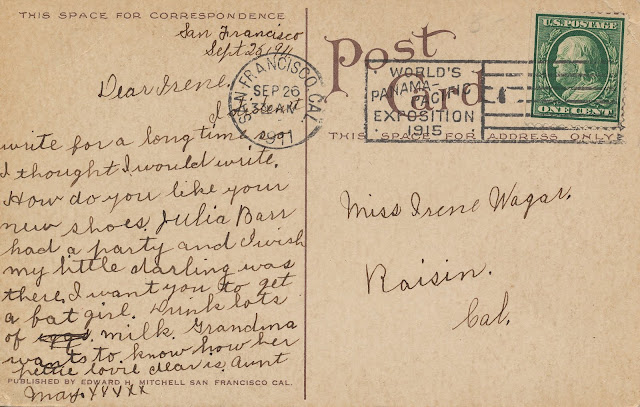 THIS SPACE FOR CORRESPONDENCE
San Francisco
Sept 25, 1911
Dear Irene.
I didn't
write for a long time so
I thought I would write.
How do you like your
new shoes. Julia Barr
had a party and I wish
my little darling was
there. I want you to get
a fat girl. Drink lots
of eggs. milk. Grandma
wants to know how her
little dear is. Aunt
May. XXXXX
PUBLISHED BY EDWARD H. MITCHELL SAN FRANCISCO CAL.
SAN FRANCISCO, CAL.
SEP 26
1911
WORLD'S
PANAMA-
PACIFIC
EXPOSITION
1915
U.S. POSTAGE
ONE CENT
Post
Card
THIS SPACE FOR ADDRESS ONLY
Miss Irene Wagar.
Raisin.
Cal.